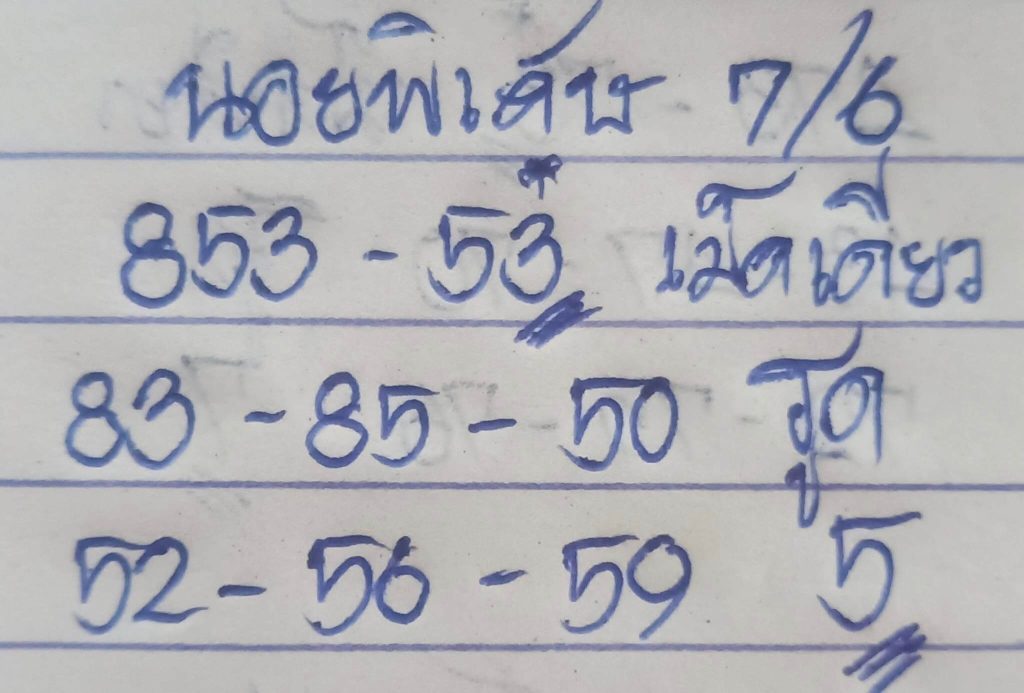 นอยพิเศษ 7/6
853 - 53 เม็ดเดียว
83 - 85 - 50 รูด
52 - 56 - 59 5